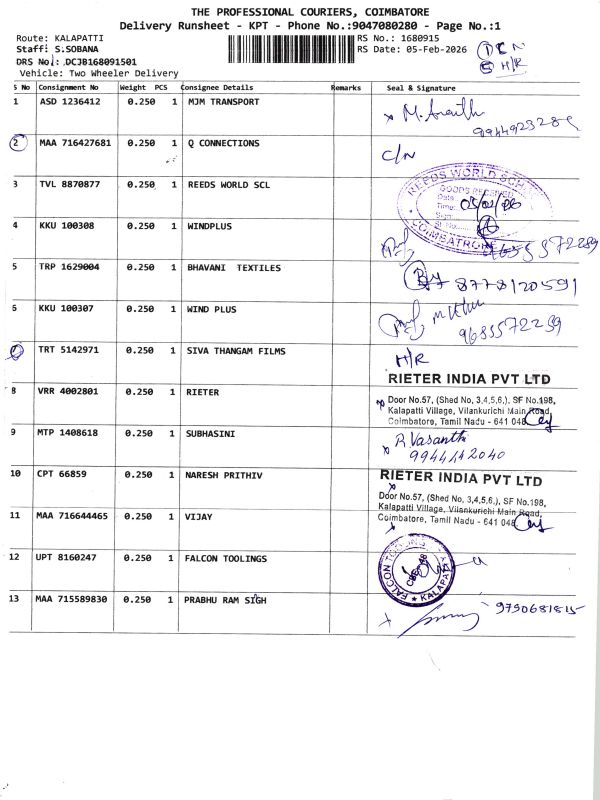 THE PROFESSIONAL COURIERS, COIMBATORE
Delivery Runsheet - KPT - Phone No.:9047080280 - Page No.:1
Route: KALAPATTI
RS No.: 1680915
Staff: S.SOBANA
RS Date: 05-Feb-2026
DRS No.: DCJB168091501
Vehicle: Two Wheeler Delivery
① C N
⑤ H/R
S No Consignment No Weight PCS Consignee Details Remarks Seal & Signature
1 ASD 1236412 0.250 1 MJM TRANSPORT
2 MAA 716427681 0.250 1 Q CONNECTIONS C/N
3 TVL 8870877 0.250 1 REEDS WORLD SCL
REEDS WORLD
GOODS RECEIVED
Date
Time:
Sign
COIMBATORE
4 KKU 100308 0.250 1 WINDPLUS
5 TRP 1629004 0.250 1 BHAVANI TEXTILES 8778120591
6 KKU 100307 0.250 1 WIND PLUS
7 TRT 5142971 0.250 1 SIVA THANGAM FILMS H/R
8 VRR 4002801 0.250 1 RIETER
RIETER INDIA PVT LTD
Door No.57, (Shed No, 3,4,5,6,), SF No.198,
Kalapatti Village, Vilankurichi Main Road,
Coimbatore, Tamil Nadu - 641 048
9 MTP 1408618 0.250 1 SUBHASINI R. Vasanthi
9944142040
10 CPT 66859 0.250 1 NARESH PRITHIV
RIETER INDIA PVT LTD
Door No.57, (Shed No, 3,4,5,6,), SF No.198,
Kalapatti Village, Vilankurichi Main Road,
Coimbatore, Tamil Nadu - 641 048
11 MAA 716644465 0.250 1 VIJAY
12 UPT 8160247 0.250 1 FALCON TOOLINGS
FALCON TOOLINGS
KALAPATTI
13 MAA 715589830 0.250 1 PRABHU RAM SIGH 9790681815